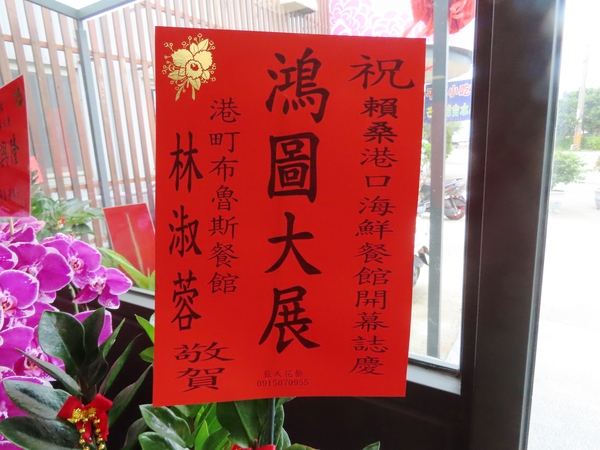 祝
賴桑港口海鮮餐館開幕誌慶
鴻圖大展
港町布魯斯餐館
林淑蓉
敬賀
0915070955